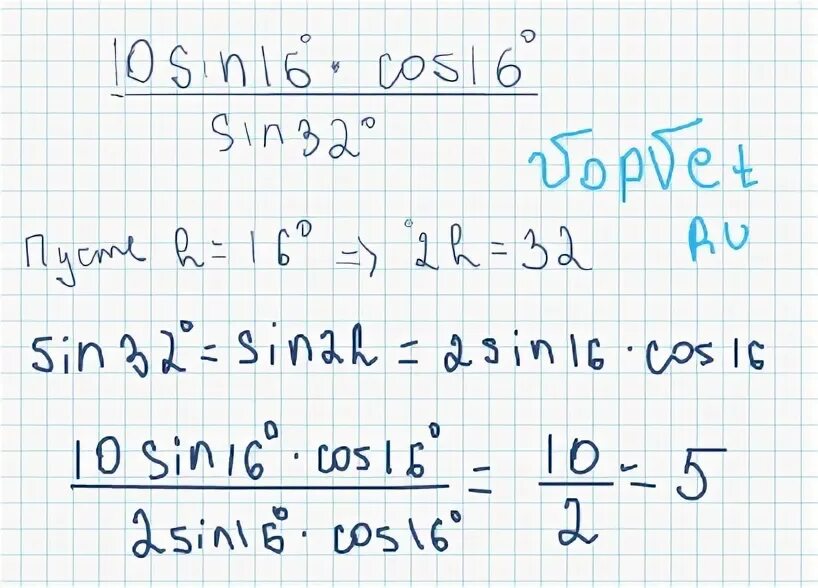 10 sin16° · cos16°
sin32°
vopvet
RU
Пусть h = 16° => 2h = 32
sin32° = sin2h = 2sin16 · cos16
10 sin16° · cos16° = 10 = 5
2sin16° · cos16° 2